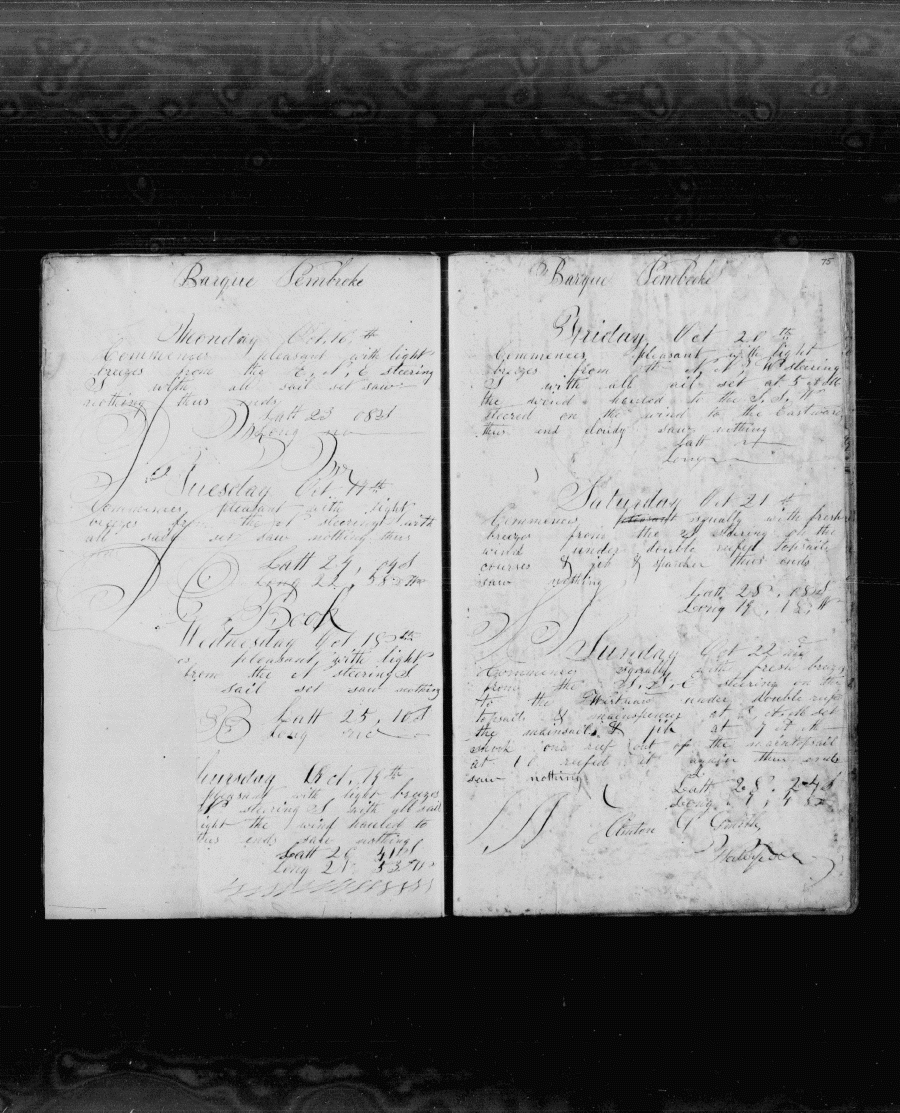 Barque Pembroke
Monday Oct 16 th
Commences pleasant with light
breezes from the E, N, E steering
S with all sail set saw
nothing thus ends
Latt 23 08 S
Long
Tuesday Oct 17 th
Commences pleasant with light
breezes from the N steering S with
all sail set saw nothing thus
Latt 24, 09 S
Long 22, 58
Book
Wednesday Oct 18 th
es pleasant with light
from the N steering S
sail set saw nothing
Latt 25, 10 S
Long
Thursday Oct, 19 th
pleasant with light breezes
steering S with all sail
ight the wind hauled to
thus ends saw nothing
Latt 26 41 S
Long 21 53 W
75
Barque Pembroke
Friday Oct 20 th
Commences pleasant with light
breezes from the N N W steering
S with all sail set at 5 A M
the wind hauled to the S. S. W
steered on the wind to the Eastward
thus ends cloudy saw nothing
Latt
Long
Saturday Oct 21 st
Commences pleasant squally with fresh
breezes from the S steering on the
wind under double reefed topsails
courses & jib & spanker thus ends
saw nothing
Latt 28, 08 S
Long 19, 18, W
Sunday Oct 22 nd
Commences squally with fresh breezes
from the S, E steering on the
to the Westward under double reefed
topsails & mainspencer at set
the mainsail & jib at 9
shook one reef out of the maintopsail
at 10 reefed it again thus ends
saw nothing
Latt 28, 24 S
Long
Clinton Smith